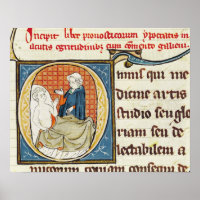 Incipit liber pronosticorum ypocratis in
acutis egritudinibus cum commento galieni
mnis qui me
dicine artis
studio seu glo
riam seu de
lectabilem a